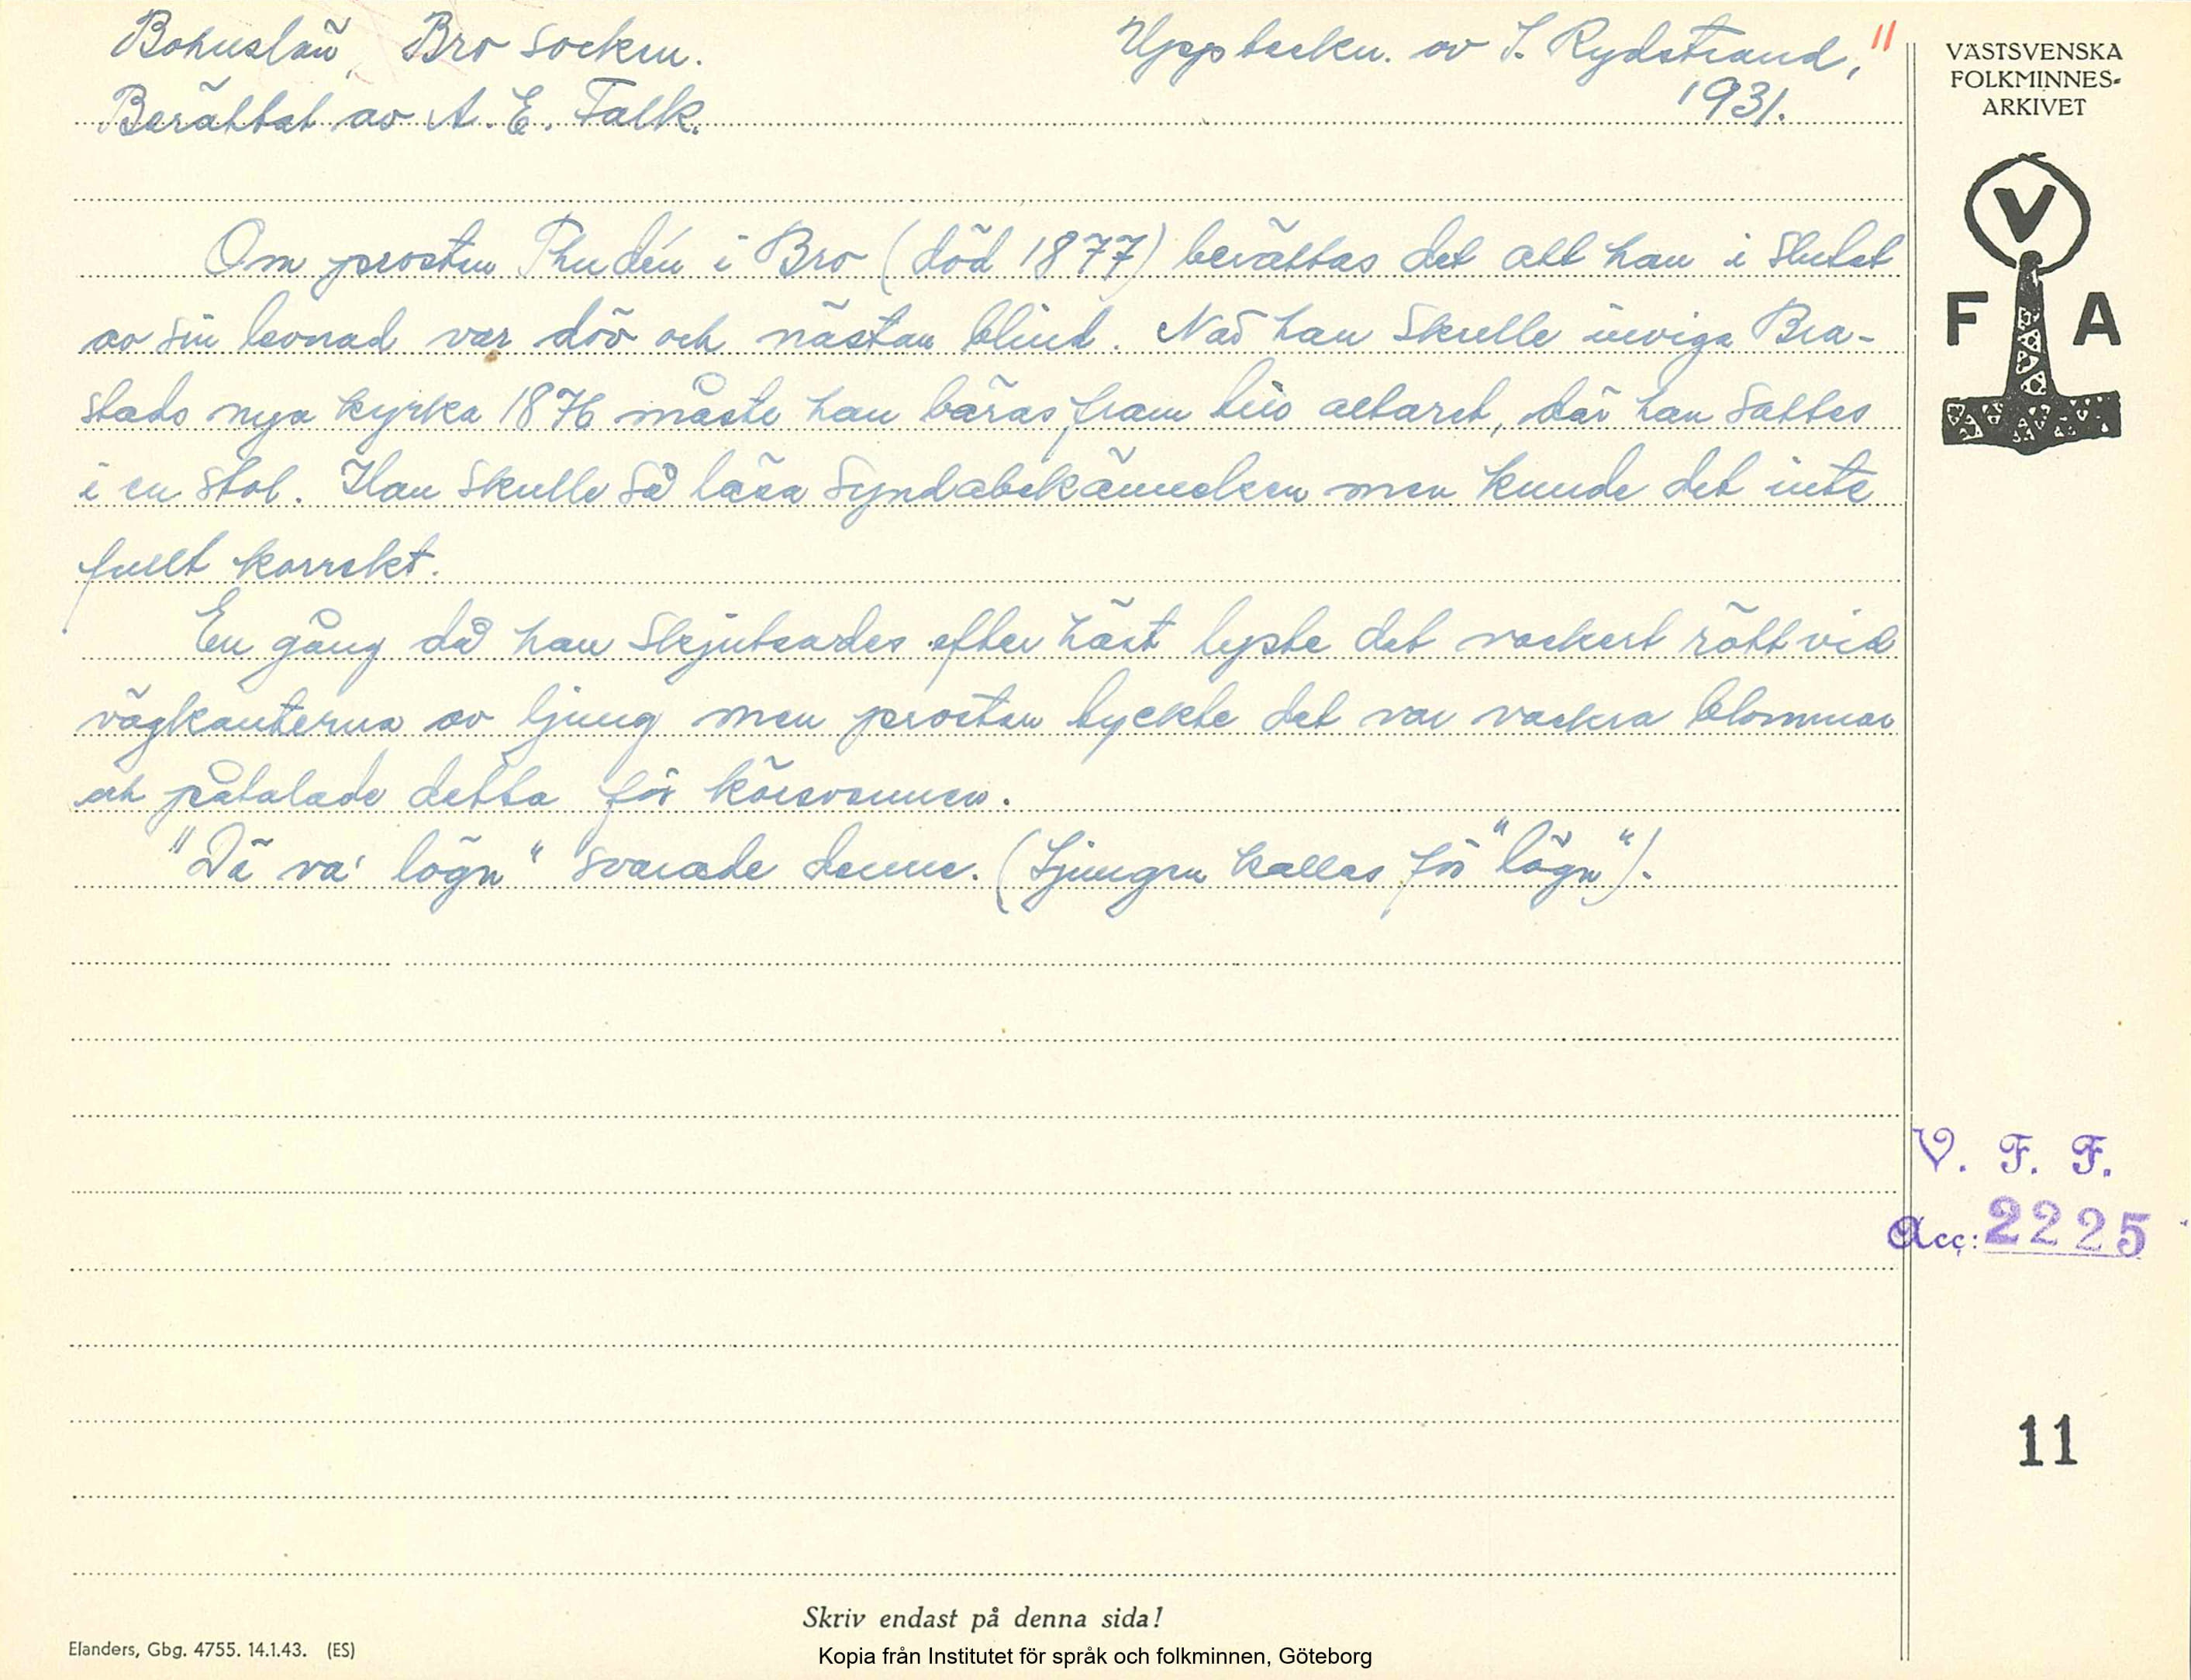 Bohuslän, Bro socken.
Uppteckn. av S. Rydstrand, 11
1931.
Berättat av A. E. Falk.
Om prosten Thudén i Bro (död 1877) berättas det att han i slutet
av sin levnad var döv och nästan blind. När han skulle inviga Bra-
stads nya kyrka 1876 måste han bäras fram till altaret, där han sattes
i en stol. Han skulle så läsa syndabekännelsen men kunde det inte
fullt korrekt.
En gång då han skjutsades efter häst lyste det vackert rött vid
vägkanterna av ljung men prosten tyckte det var vackra blommor
och påtalade detta för körsvennen.
"Dä va' lögn" svarade denne. (Ljungen kallas för "lögn").
VÄSTSVENSKA
FOLKMINNES-
ARKIVET
V
F A
V. F. F.
Acc: 2225
11
Skriv endast på denna sida!
Elanders, Gbg. 4755. 14.1.43. (ES)
Kopia från Institutet för språk och folkminnen, Göteborg